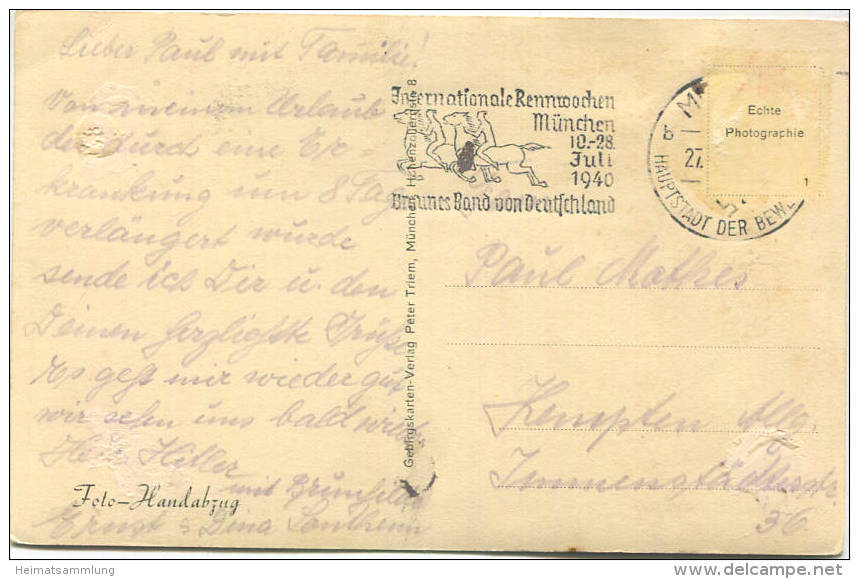 Lieber Paul mit Familie!
Von meinem Urlaub
der durch eine Er-
krankung um 8 Tag
verlängert wurde
sende ich Dir u. den
Deinen herzlichste Grüße
Es geht mir wieder gut
wir sehen uns bald wied
Heil Hitler
mit
Foto-Handabzug
Ernst & Sontheim
Gebirgskarten-Verlag Peter Triem, München, Hohenzollernstr. 8
Internationale Rennwochen
München
10.-28.
Juli
1940
Braunes Band von Deutschland
27.
HAUPTSTADT DER BEWE
Echte
Photographie
1
Paul Mathes
Kempten Allg.
Immenstädterstr.
36
Heimatsammlung
delcampe.net